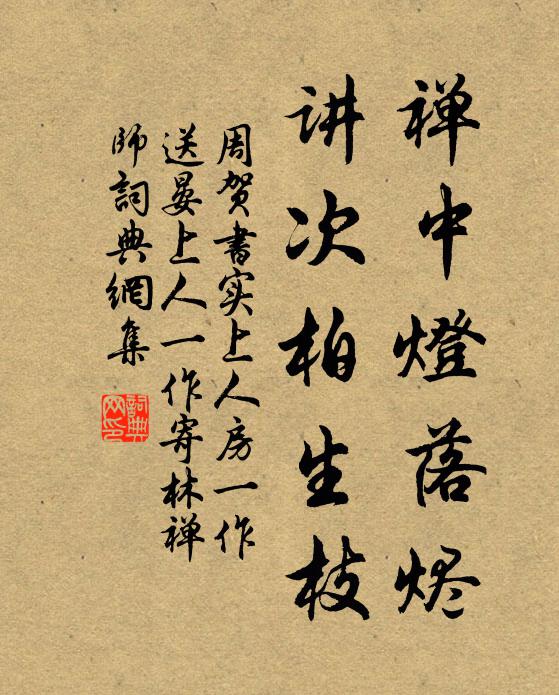 禅中燈落烬
讲次柏生枝
周贺書实上人房一作
送晏上人一作寄林禅
师詞典網集
詞典
网印